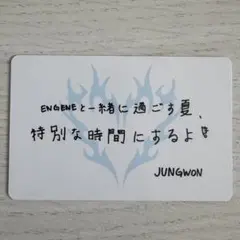 ENGENEと一緒に過ごす夏、
特別な時間にするよ
JUNGWON